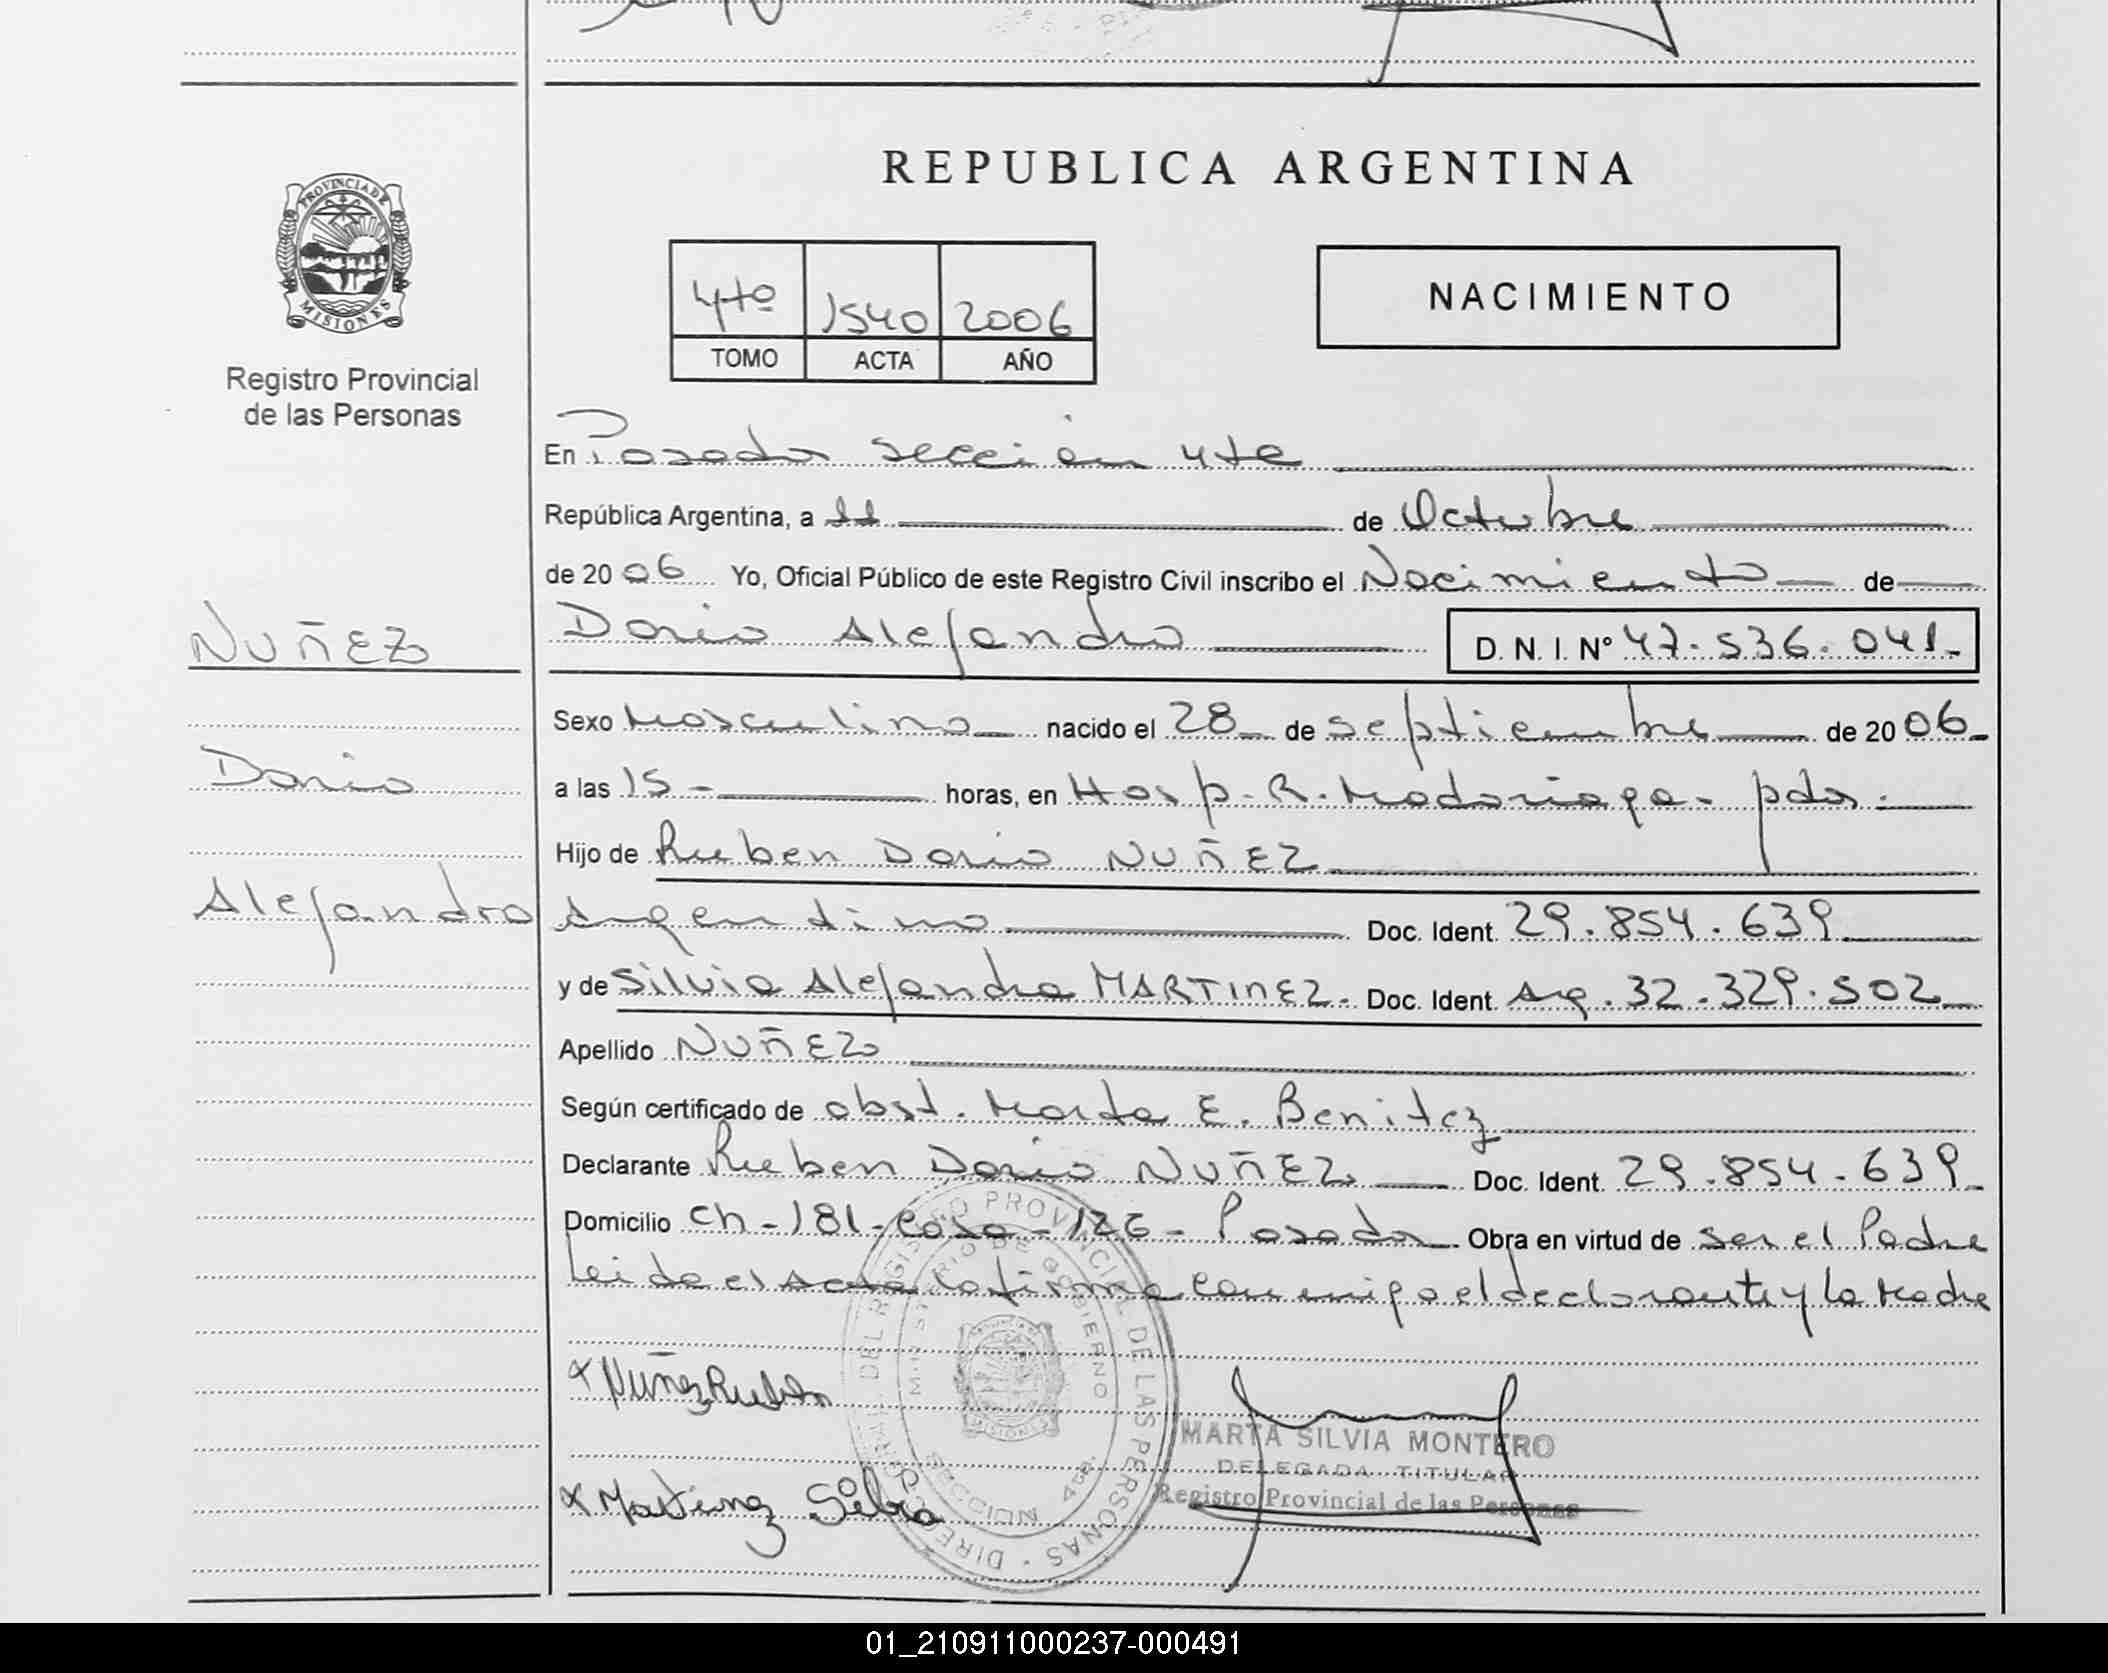 REPUBLICA ARGENTINA
PROVINCIA DE
MISIONES
Registro Provincial
de las Personas
4to 1540 2006
TOMO ACTA AÑO
NACIMIENTO
En Posadas sección 4ta
República Argentina, a 11 de Octubre
de 2006 Yo, Oficial Público de este Registro Civil inscribo el Nacimiento de
NUÑEZ
Dario Alejandro D. N. I. Nº 47.536.041.-
Sexo Masculino nacido el 28 de septiembre de 2006
Dario
a las 15 - horas, en Hosp. R. Madariaga - pdas.
Hijo de Ruben Dario NUÑEZ
Alejandro
Argentino Doc. Ident. 29.854.639
y de Silvia Alejandra MARTINEZ - Doc. Ident. Arg. 32.329.502
Apellido NUÑEZ
Según certificado de obst. Marta E. Benitez
Declarante Ruben Dario NUÑEZ Doc. Ident. 29.854.639
Domicilio Ch - 181 - casa - 126 - Posadas Obra en virtud de ser el Padre
Leida el acta la firma conmigo el declarante y la Madre
x Nuñez Ruben
x Martinez Silvia
DIRECC. GRAL. DEL REGISTRO PROVINCIAL DE LAS PERSONAS
MINISTERIO DE GOBIERNO
SECCION 4ta.
MARTA SILVIA MONTERO
DELEGADA TITULAR
Registro Provincial de las Personas
01_210911000237-000491